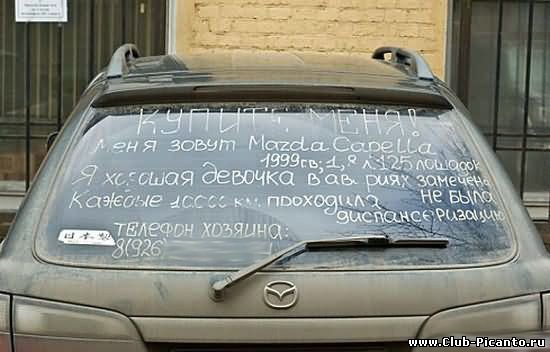 КУПИТЕ МЕНЯ!
Меня зовут Mazda Capella
1999 гв; 1,8 л 125 лошадок
Я хорошая девочка в авариях замечена не была
Каждые 10.000 км. проходила диспансеризацию
Телефон хозяина:
8(926)
日本製
www.Club-Picanto.ru